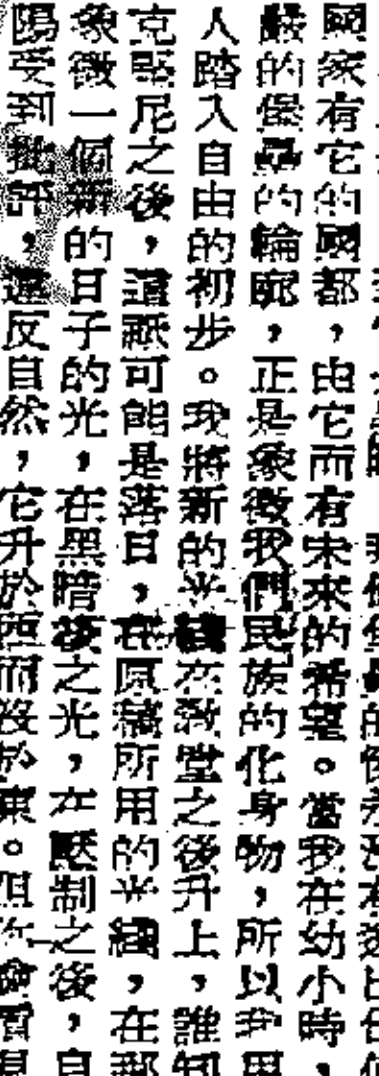 國家有它的國都，由它而有未來的希望。當我在幼小時，
嚴的堡壘的輪廓，正是象徵我們民族的化身物，所以我用
人踏入自由的初步。我將新的光線在教堂之後升上，誰知
克堅尼之後，這可能是落日，在原稿所用的光線，在那
象徵一個新的日子的光，在黑暗後之光，在壓制之後，自
陽受到批評，違反自然，它升於西而沒於東。但你會看見